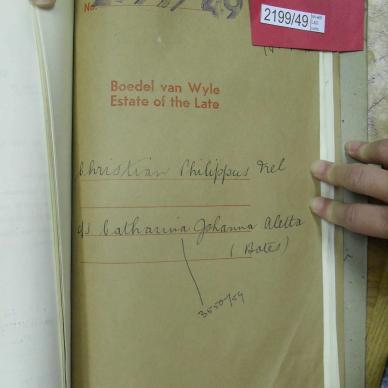 No. 2199/49
2199/49
Boedel van Wyle
Estate of the Late
Christian Philippus Nel
Catharina Johanna Aletta
(Botes)